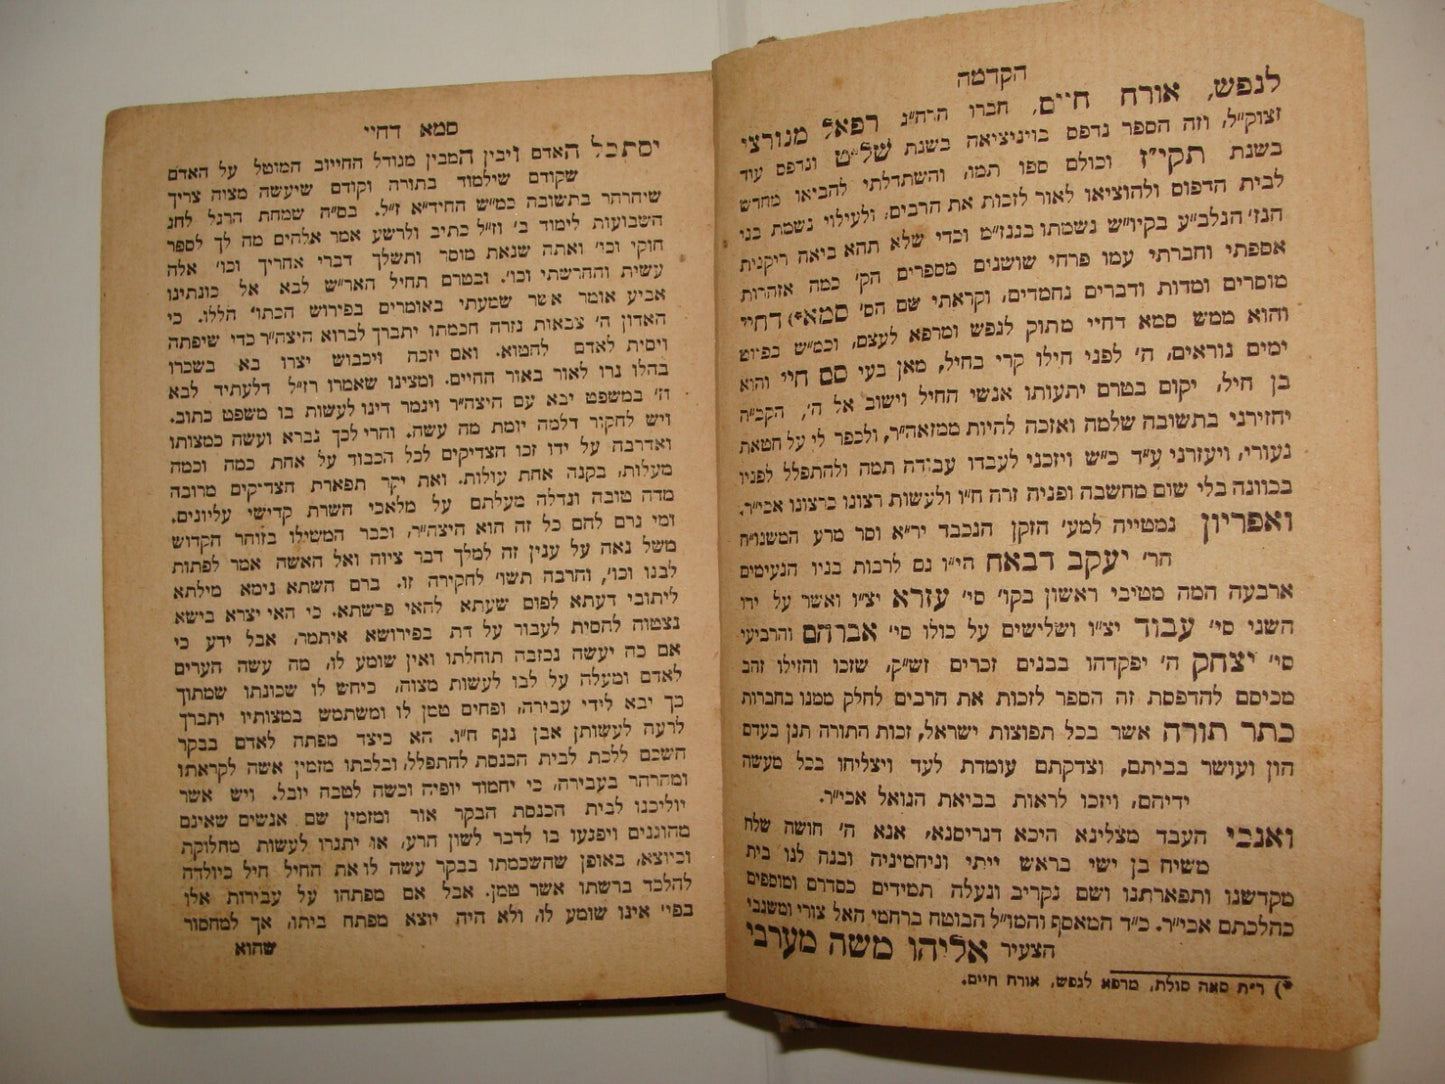 הקדמה
לנפש, אורח חיים, חברו הרח״ג רפאל מנורצי
זצוק״ל, וזה הספר נדפס בויניציאה בשנת של״ט ונדפס עוד
בשנת תקי״ז וכולם ספו תמו, והשתדלתי להביאו מחדש
לבית הדפוס ולהוציאו לאור לזכות את הרבים, ולעילוי נשמת בני
הנז׳ הנלב״ע בקיו״ש נשמתו בגנז״מ וכדי שלא תהא ביאה ריקנית
אספתי וחברתי עמו פרחי שושנים מספרים הק׳ כמה אזהרות
מוסרים ומדות ודברים נחמדים, וקראתי שם הס׳ סמא*) דחיי
והוא ממש סמא דחיי מתוק לנפש ומרפא לעצם, וכמ״ש בפיוט
ימים נוראים, ה׳ לפני חילו קרי בחיל, מאן בעי סם חיי והוא
בן חיל, יקום בטרם יתעותו אנשי החיל וישוב אל ה׳, הקב״ה
יחזירני בתשובה שלמה ואזכה להיות ממזאה״ר, ולכפר לי על חטאת
נעורי, ויעזרני ע״ד כ״ש ויזכני לעבדו עבודה תמה ולהתפלל לפניו
בכוונה בלי שום מחשבה ופניה זרה ח״ו ולעשות רצונו כרצונו אכי״ר.
ואפריון נמטייה למע׳ הזקן הנכבד יר״א וסר מרע המשנו״ח
הר׳ יעקב דבאח הי״ו גם לרבות בניו הנעימים
ארבעה המה מטיבי ראשון בקו׳ סי׳ עזרא יצ״ו ואשר על ידו
השני סי׳ עבוד יצ״ו ושלישים על כולו סי׳ אברהם והרביעי
סי׳ יצחק ה׳ יפקדהו בבנים זכרים זש״ק, שזכו והזילו זהב
מכיסם להדפסת זה הספר לזכות את הרבים לחלק ממנו בחברות
כתר תורה אשר בכל תפוצות ישראל, זכות התורה תגן בעדם
הון ועושר בביתם, וצדקתם עומדת לעד ויצליחו בכל מעשה
ידיהם, ויזכו לראות בביאת הגואל אכי״ר.
ואנכי העבד מצלינא היכא דגריסנא, אנא ה׳ חושה שלח
משיח בן ישי בראש ייתי וניחמיניה ובנה לנו בית
מקדשנו ותפארתנו ושם נקריב ונעלה תמידים כסדרם ומוספים
כהלכתם אכי״ר. כ״ד המאסף והמו״ל הבוטח ברחמי האל צורי ומשגבי
הצעיר אליהו משה מערבי
*) ר״ת סאה סולת, מרפא לנפש, אורח חיים.
סמא דחיי
יסתכל האדם ויבין המבין מגודל החייוב המוטל על האדם
שקודם שילמוד בתורה וקודם שיעשה מצוה צריך
שיהרהר בתשובה כמ״ש החיד״א ז״ל. בס״ה שמחת הרגל לחג
השבועות לימוד ב׳ וז״ל כתיב ולרשע אמר אלהים מה לך לספר
חוקי וכו׳ ואתה שנאת מוסר ותשלך דברי אחריך וכו׳ אלה
עשית והחרשתי וכו׳. ובטרם תחיל האר״ש לבא אל כונתינו
אביע אומר אשר שמעתי באומרים בפירוש הכתו׳ הללו. כי
האדון ה׳ צבאות גזרה חכמתו יתברך לברוא היצה״ר כדי שיפתה
ויסית לאדם להטוא. ואם יזכה ויכבוש יצרו בא בשכרו
בהלו נרו לאור באור החיים. ומצינו שאמרו רז״ל דלעתיד לבא
וז׳ במשפט יבא עם היצה״ר ויגמר דינו לעשות בו משפט כתוב.
ויש לחקור דלמה יומת מה עשה. והרי לכך נברא ועשה כמצותו
ואדרבה על ידו זכו הצדיקים לכל הכבוד על אחת כמה וכמה
מעלות, בקנה אחת עולות. ואת יקר תפארת הצדיקים מרובה
מדה טובה וגדלה מעלתם על מלאכי השרת קדישי עליונים.
ומי גרם להם כל זה הוא היצה״ר, וכבר המשילו בזוהר הקדוש
משל נאה על ענין זה למלך דבר ציוה ואל האשה אמר לפתות
לבנו וכו׳, והרבה תשו׳ לחקירה זו. ברם השתא נימא מילתא
ליתובי דעתא לפום שעתא לתאי פרשתא. כי האי יצרא בישא
נצטוה להסית לעבור על דת בפירושא איתמר, אבל ידע כי
אם כה יעשה נכזבה תוחלתו ואין שומע לו, מה עשה הערים
לאדם ומעלה על לבו לעשות מצוה, כיחש לו שכונתו שמתוך
כך יבא לידי עבירה, ופחים טמן לו ומשתמש במצותיו יתברך
לרעה לעשותן אבן נגף ח״ו. הא כיצד מפתה לאדם בבקר
השכם ללכת לבית הכנסת להתפלל, ובלכתו מזמין אשה לקראתו
ומהרהר בעבירה, כי יחמוד יופיה וכשה לטבח יובל. ויש אשר
יוליכנו לבית הכנסת הבקר אור ומזמין שם אנשים שאינם
מהוגנים ויפגעו בו לדבר לשון הרע, או יתגרו לעשות מחלוקת
וכיוצא, באופן שהשכמתו בבקר עשה לו את החיל חיל כיולדה
להלכד ברשתו אשר טמן. אבל אם מפתהו על עבירות אלו
בפי׳ אינו שומע לו, ולא היה יוצא מפתח ביתו, אך למחסור
שהוא